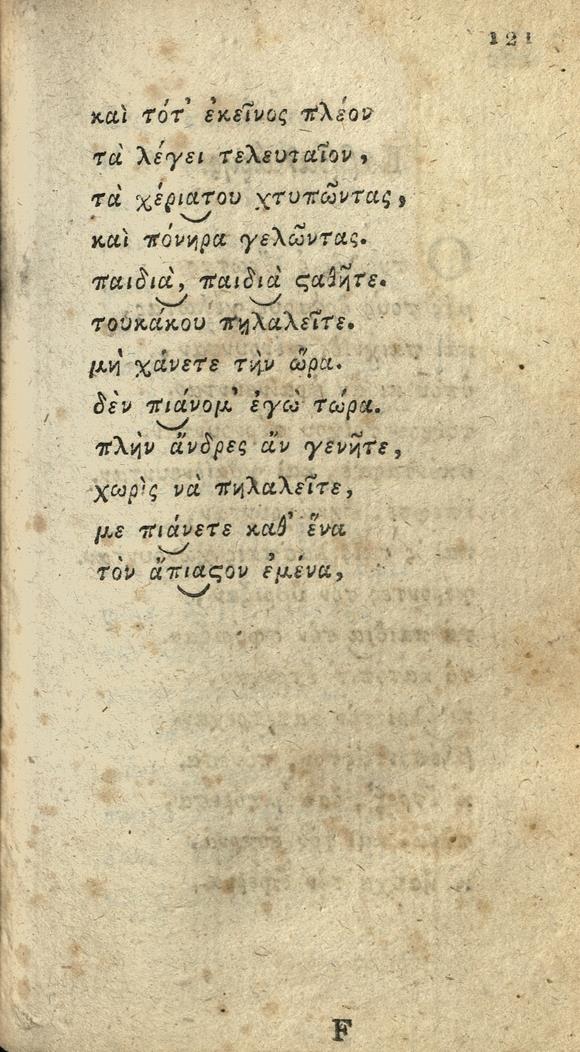 121
καὶ τότ' ἐκεῖνος πλέον
τὰ λέγει τελευταῖον,
τὰ χέριατου χτυπῶντας,
καὶ πόνηρα γελῶντας.
παιδιὰ, παιδιὰ ϛαθῆτε.
τουκάκου πηλαλεῖτε.
μὴ χάνετε τὴν ὥρα.
δὲν πιάνομ' ἐγὼ τώρα.
πλὴν ἄνδρες ἂν γενῆτε,
χωρὶς νὰ πηλαλεῖτε,
με πιάνετε καθ' ἕνα
τὸν ἄπιαϛον ἐμένα,
F